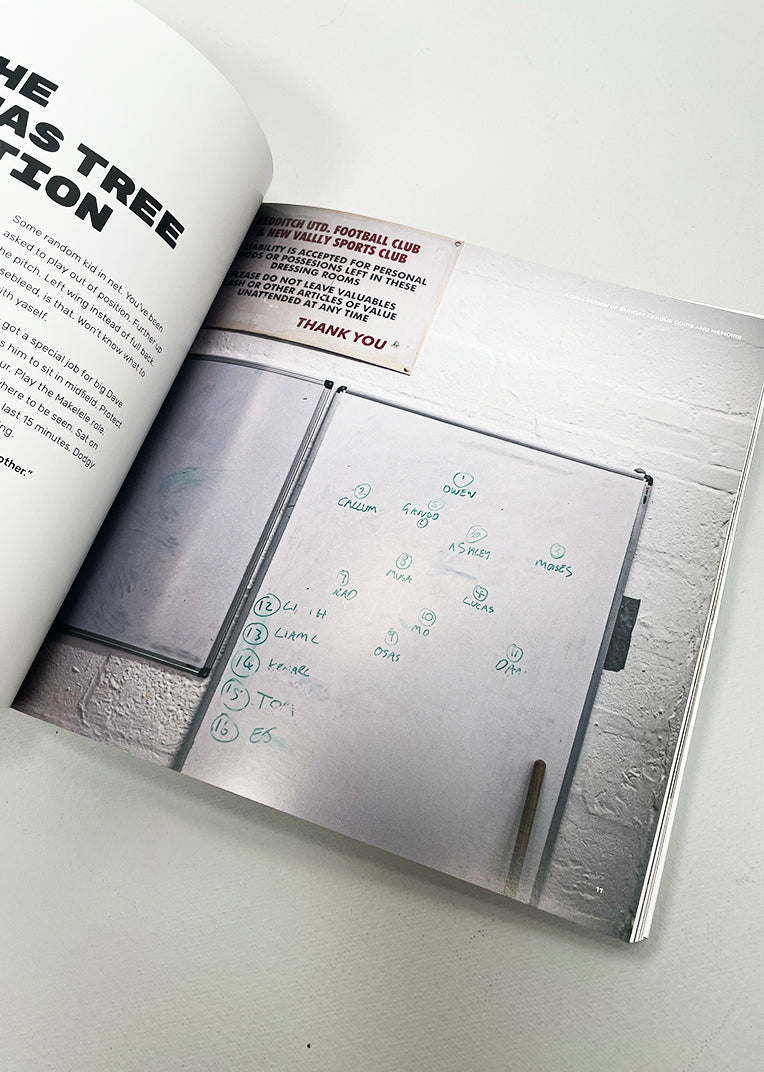 HE
AS TREE
TION
Some random kid in net. You've been
asked to play out of position. Further up
the pitch. Left wing instead of full back.
sebleed, is that. Won't know what to
ith yaself.
got a special job for big Dave
s him to sit in midfield. Protect
ur. Play the Makelele role.
here to be seen. Sat on
last 15 minutes. Dodgy
ng.
other."
REDDITCH UTD. FOOTBALL CLUB
& NEW VALLLY SPORTS CLUB
LIABILITY IS ACCEPTED FOR PERSONAL
GOODS OR POSSESIONS LEFT IN THESE
DRESSING ROOMS
PLEASE DO NOT LEAVE VALUABLES
CASH OR OTHER ARTICLES OF VALUE
UNATTENDED AT ANY TIME
THANK YOU
A COLLECTION OF SUNDAY LEAGUE QUIPS AND MEMOIRS
1
OWEN
2
CALLUM
GANDO
ASHLEY
3
MOISES
8
MUSA
7
RAD
4
LUCAS
10
MO
9
OSAS
11
DAN
12
13 LIAM C
14
15 TOM
16 ES
11